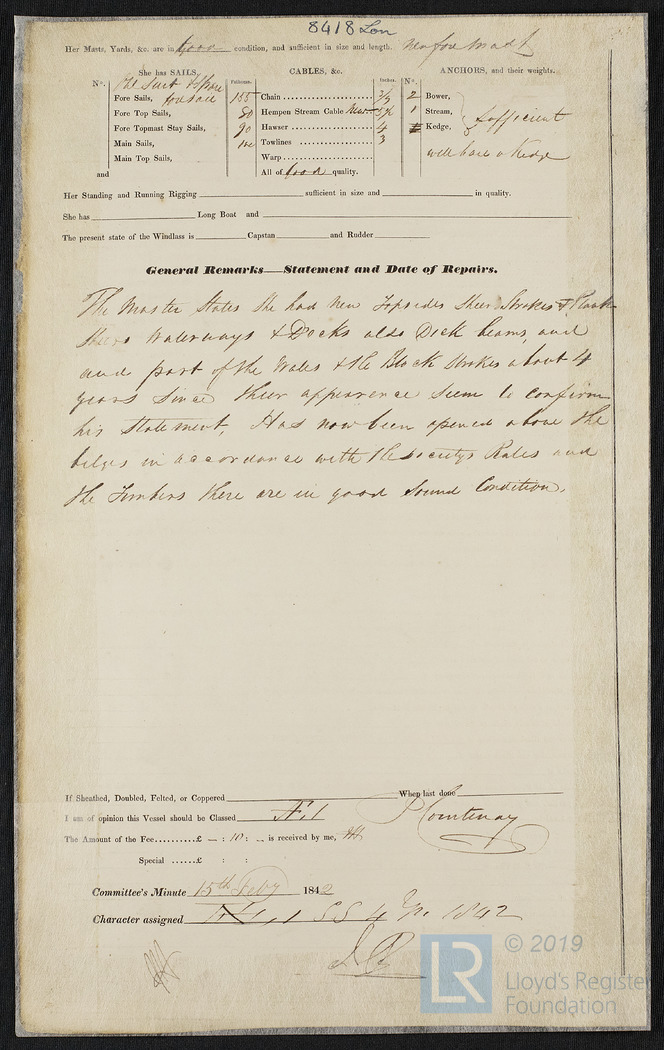 8418 Lon
Her Masts, Yards, &c. are in Good condition, and sufficient in size and length. New fore Mast
She has SAILS.
CABLES, &c.
ANCHORS, and their weights.
No.
Fathoms.
Inches.
No.
One Suit
Fore Sails,
Fore Top Sails,
Fore Topmast Stay Sails,
Main Sails,
Main Top Sails,
and
155
80
90
Chain
Hempen Stream Cable New
Hawser 4
Towlines 3
Warp
All of Good quality.
2 Bower,
1 Stream,
Kedge,
Sufficient
will have a Kedge
Her Standing and Running Rigging sufficient in size and in quality.
She has Long Boat and
The present state of the Windlass is Capstan and Rudder
General Remarks—Statement and Date of Repairs.
The Master States She had New Topsides Sheer Strokes & Plank
Sheers Waterways & Decks also Deck beams, and
and part of the Wales & the Block Strokes about 4
years Since Their appearance Seem to confirm
his statement, Has now been opened above the
bilges in accordance with the Societys Rules and
the Timbers there are in good Sound Condition.
If Sheathed, Doubled, Felted, or Coppered When last done
I am of opinion this Vessel should be Classed Æ. 1
P Courtenay
The Amount of the Fee......£ – : 10 : – is received by me,
Special ......£ : :
Committee's Minute 15th Feby 1842
Character assigned Æ. 1 SS 4 Yr. 1842
LR
© 2019
Lloyd's Register
Foundation